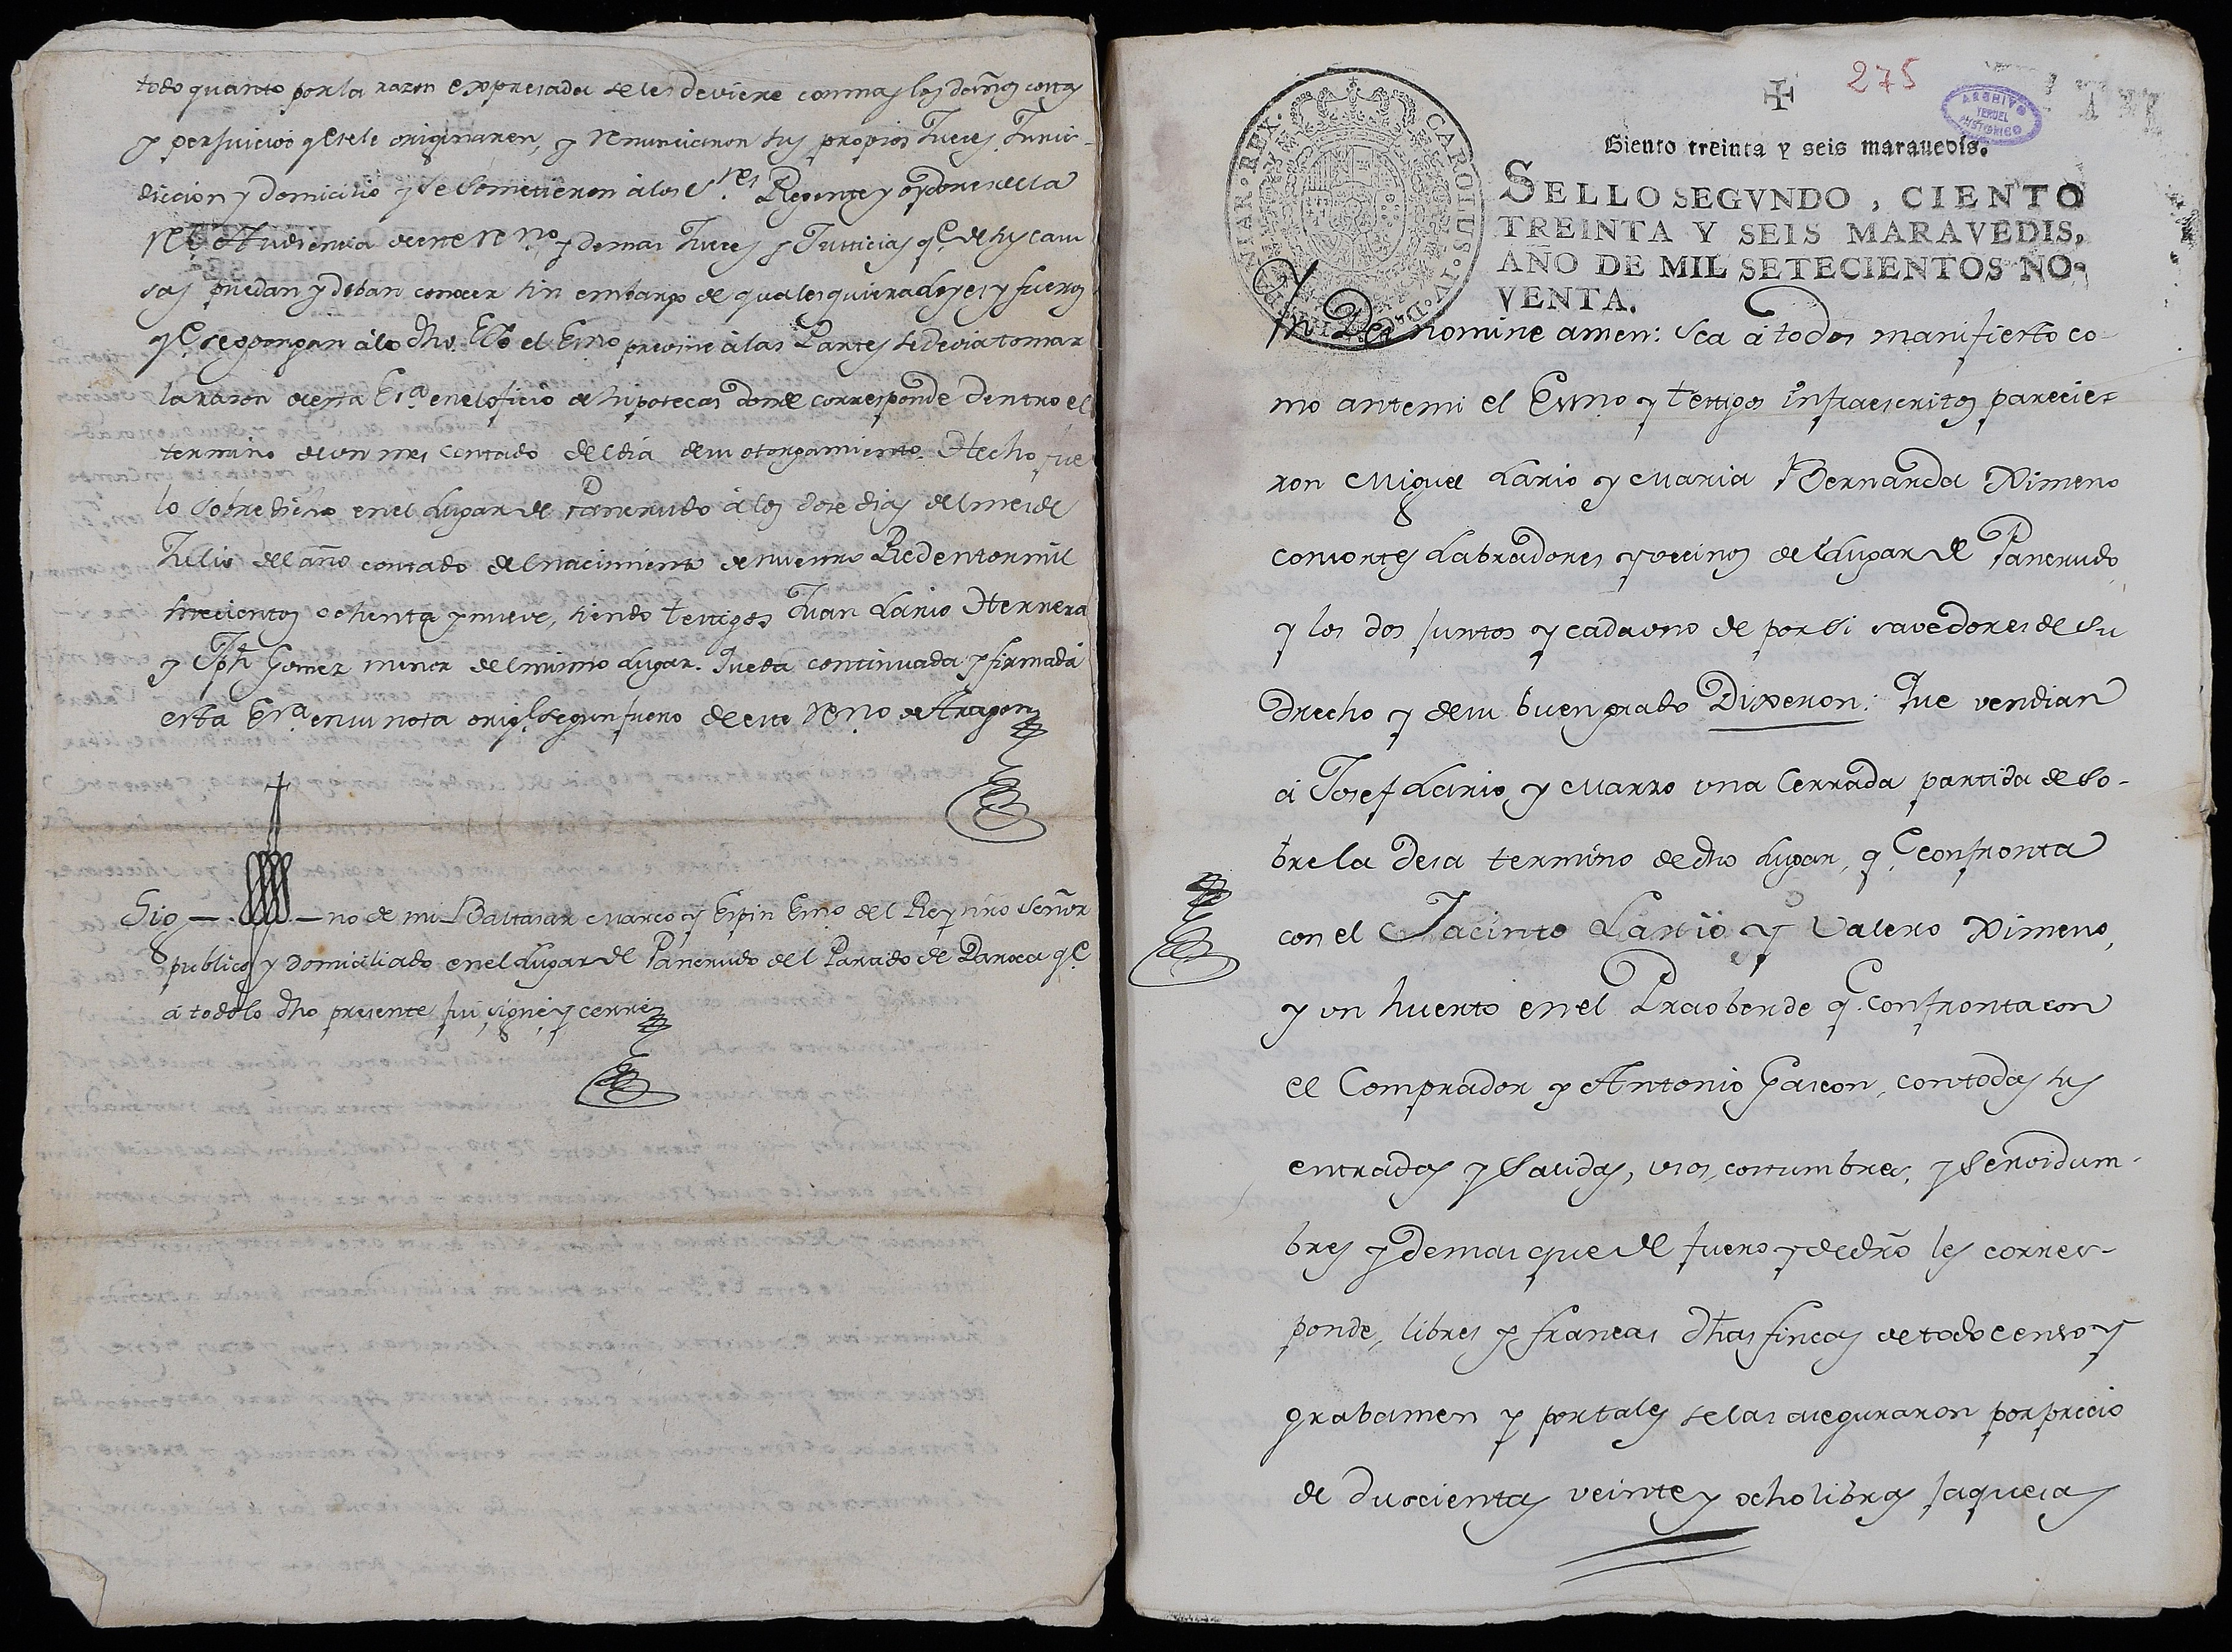 todo quanto por la razon expresada se les deviere con mas los daños costas
y persuicios q.e se le originaren, y renunciaron sus propios Jueces Juris-
diccion y domicilio y se sometieron á los S.res Regente y oydores de la
R.l Audiencia de este R.no y demas Jueces y Justicias q.e de sus cau
sas puedan y deban conocer sin embargo de qualesquiera leyes y fueros
q.e se opongan á lo dho. Yo el Esno previne á las Partes se devia tomar
la razon de esta Es.ra en el oficio de hipotecas donde corresponde dentro el
termino de un mes contado del dia de su otorgamiento. Hecho fue
lo sobredicho en el Lugar de Pancrudo á los doce dias del mes de
Julio del año contado del nacimiento de nuestro Redentor mil
setecientos ochenta y nueve, siendo testigos Juan Lario Herrera
y Jph Gomez menor del mismo Lugar. Queda continuada y firmada
esta Es.ra en su nota orig.l segun fuero de este R.no de Aragon
Sig — no de mi Baltasar Marco y Espin Esno del Rey nro Señor
publico y domiciliado en el Lugar de Pancrudo del Partido de Daroca q.e
á todo lo dho presente fui, signé, y cerré
275
ARCHIVO
TERUEL
HISTORICO
CAROLUS · IV · D · G · HISPANIAR · REX ·
Ciento treinta y seis marauedis.
SELLO SEGVNDO, CIENTO
TREINTA Y SEIS MARAVEDIS,
AÑO DE MIL SETECIENTOS NO-
VENTA.
In Dei nomine amen: Sea á todos manifiesto co-
mo ante mi el Esno y testigos infraescritos parecie-
ron Miguel Lario y Maria Bernarda Ximeno
consortes Labradores y vecinos del Lugar de Pancrudo,
y los dos juntos y cada uno de por si savedores de su
drecho y de su buen grado Dixeron: Que vendian
á Josef Lario y Marzo una Cerrada partida de so-
bre la desa termino de dho Lugar, q.e confronta
con el Jacinto Lario y Valero Ximeno,
y un huerto en el Praobende q.e confronta con
el Comprador y Antonio Gascon, con todas sus
entradas y salidas, usos, costumbres, y servidum-
bres y demas que de fuero y de dro les corres-
ponde, libres y francas dhas fincas de todo censo y
grabamen y por tales se las aseguraron por precio
de duscientas veinte y ocho libras jaquesas